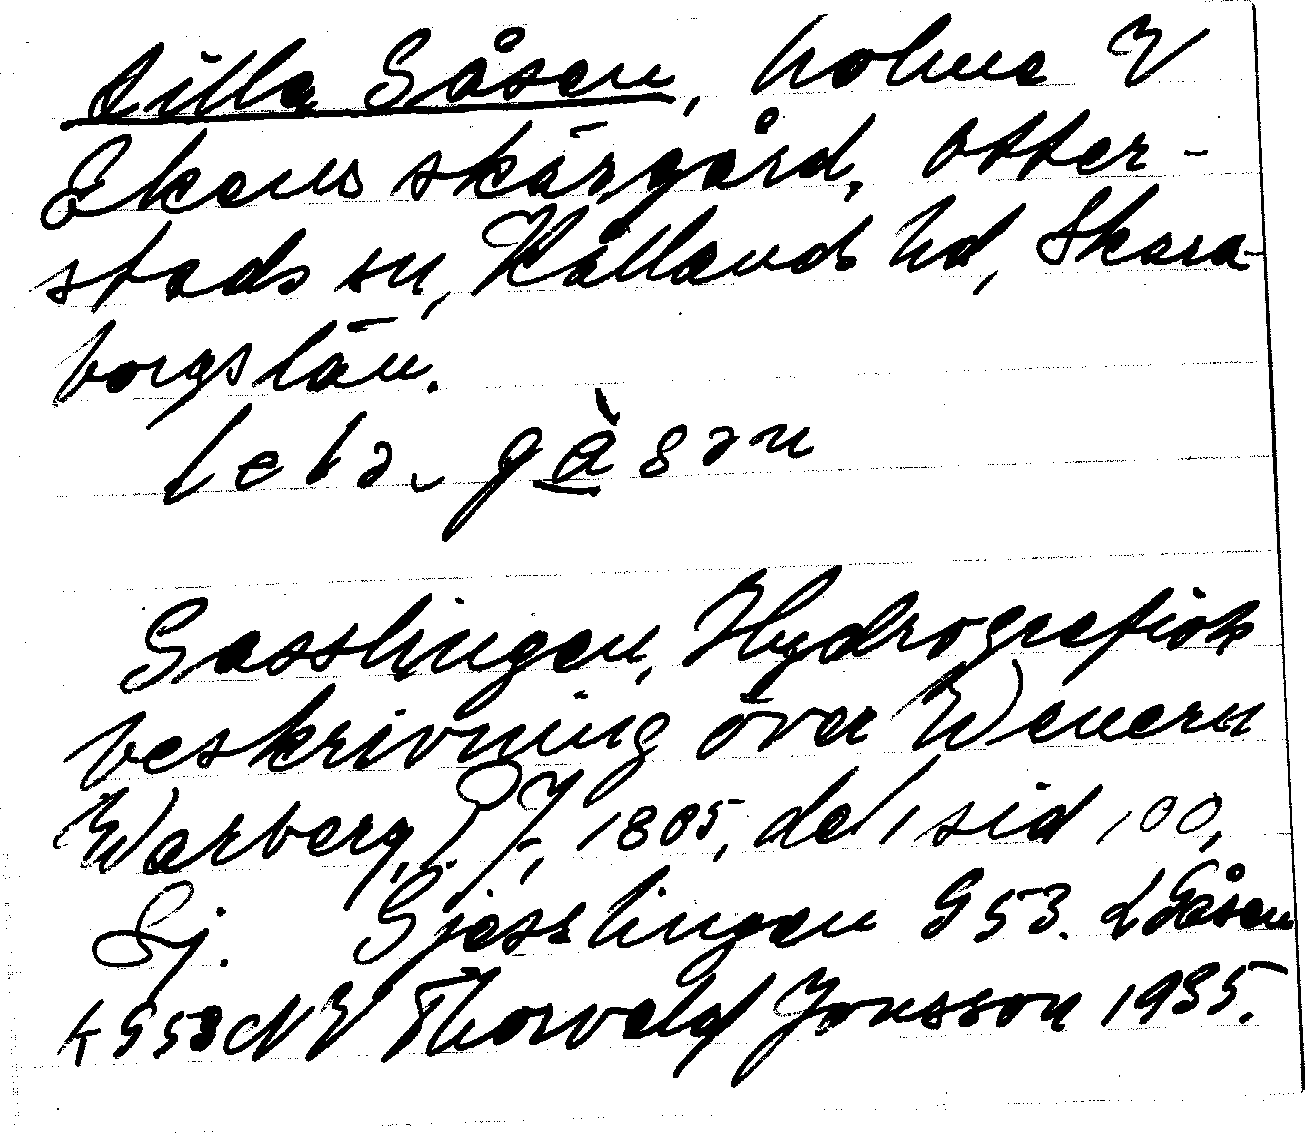 Lilla Gåsen, holme V
Ekens skärgård, Otter-
stads sn, Kållands hd, Skara-
borgs län.
Gasslingen, Hydrografisk
beskrivning över Wenern
Warberg, 1805, del 1 sid 100,
Sj. Gjesslingen G53. L Gåsen
G53 NV Thorvald Jonsson 1935.